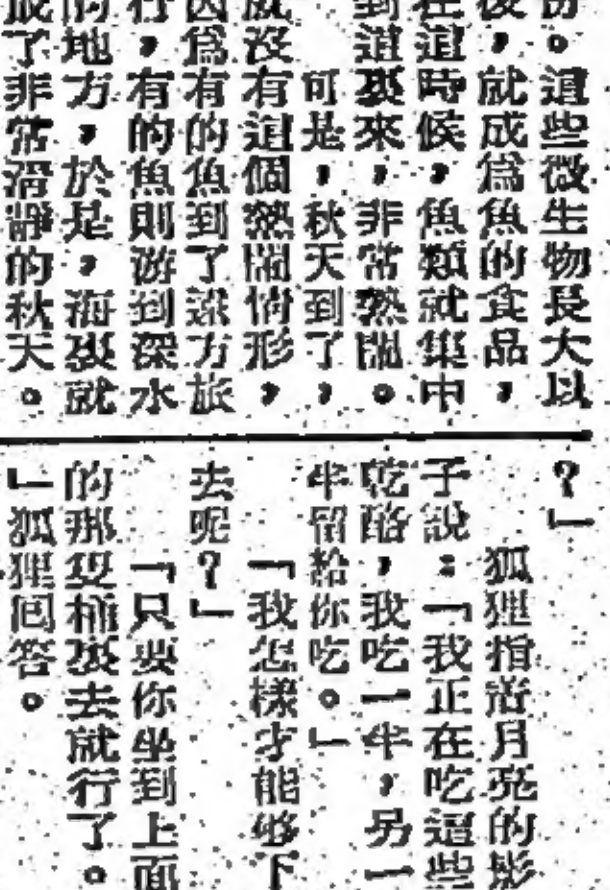 份。這些微生物長大以
後，就成爲魚的食品，
在這時候，魚類就集中
到這裏來，非常熱鬧。
可是，秋天到了，
就沒有這個熱鬧情形，
因爲有的魚到了遠方旅
行，有的魚則游到深水
的地方，於是，海裏就
成了非常滑靜的秋天。
？」
狐狸指着月亮的影
子說：「我正在吃這些
乾酪，我吃一半，另一
半留給你吃。」
「我怎樣才能够下
去呢？」
「只要你坐到上面
的那隻桶裏去就行了。
」狐狸回答。